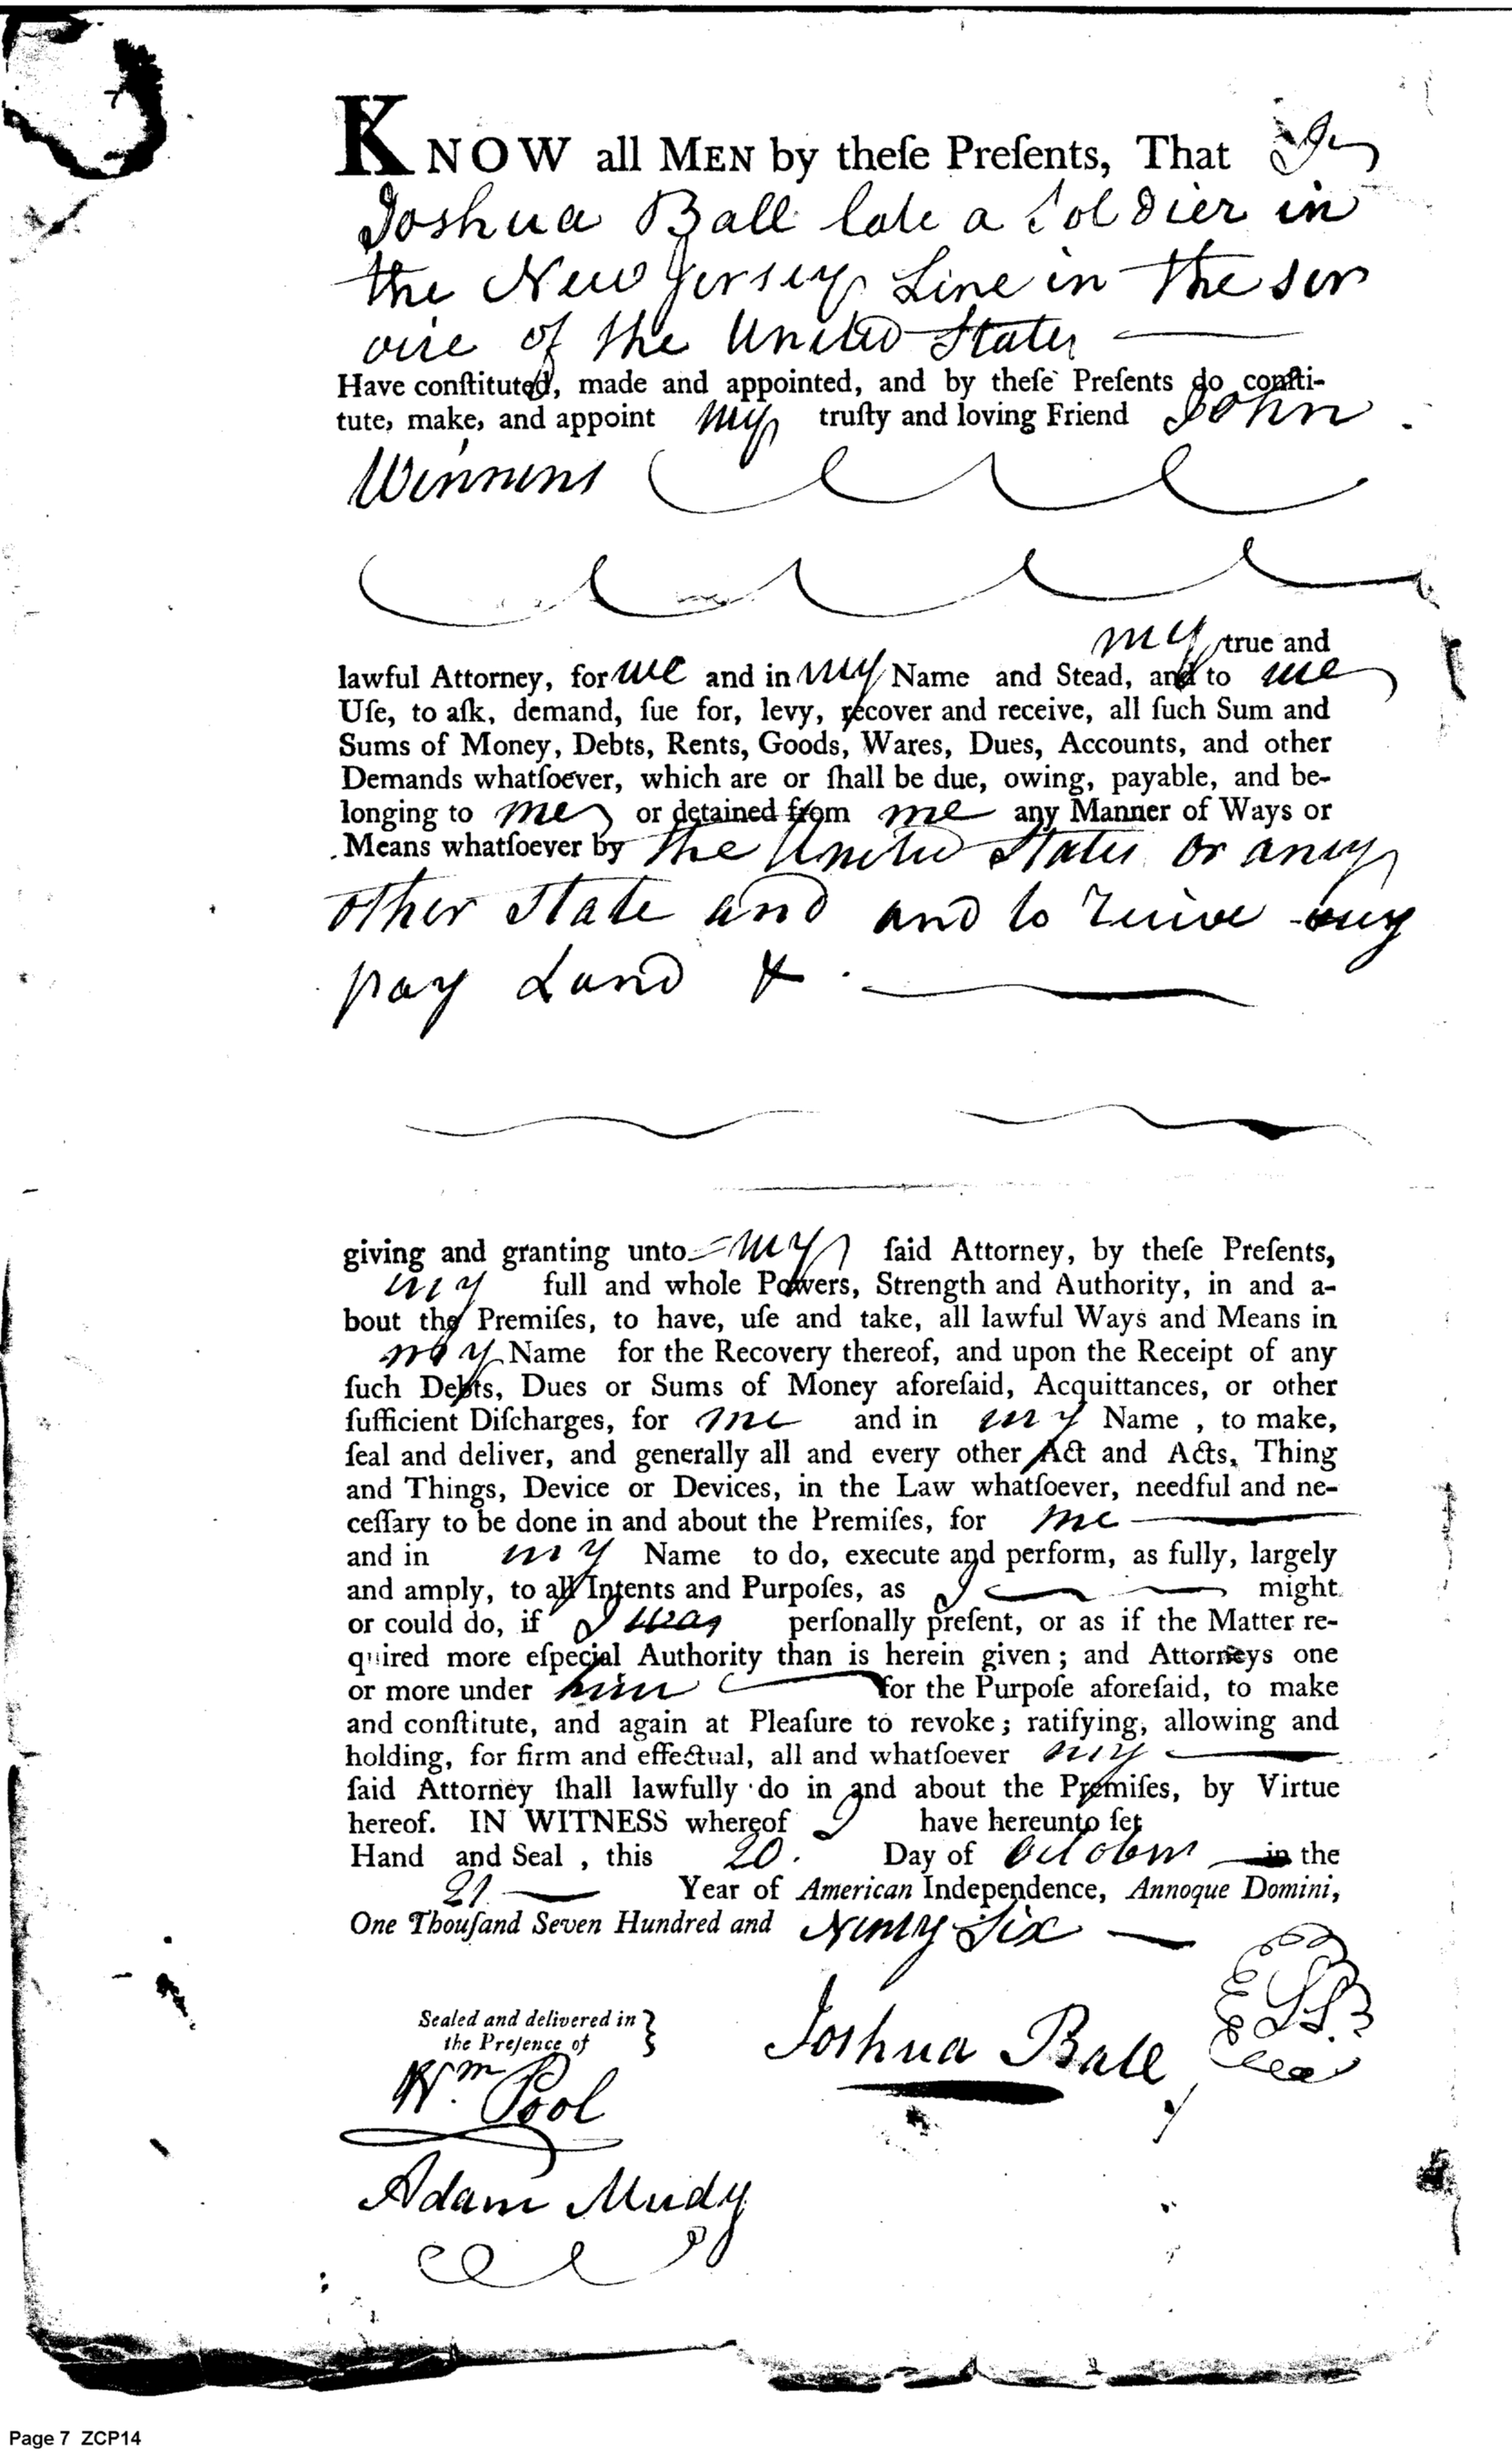 KNOW all MEN by theſe Preſents, That I
Joshua Ball late a Soldier in
the New Jersey Line in the ser
vice of the United States
Have conſtituted, made and appointed, and by theſe Preſents do conſti-
tute, make, and appoint my truſty and loving Friend John
Winnens
my true and
lawful Attorney, for me and in my Name and Stead, and to me
Uſe, to aſk, demand, ſue for, levy, recover and receive, all ſuch Sum and
Sums of Money, Debts, Rents, Goods, Wares, Dues, Accounts, and other
Demands whatſoever, which are or ſhall be due, owing, payable, and be-
longing to me or detained from me any Manner of Ways or
Means whatſoever by the United States or any
other State and and to receive my
pay Land &
giving and granting unto my ſaid Attorney, by theſe Preſents,
my full and whole Powers, Strength and Authority, in and a-
bout the Premiſes, to have, uſe and take, all lawful Ways and Means in
my Name for the Recovery thereof, and upon the Receipt of any
ſuch Debts, Dues or Sums of Money aforeſaid, Acquittances, or other
ſufficient Diſcharges, for me and in my Name , to make,
ſeal and deliver, and generally all and every other Act and Acts, Thing
and Things, Device or Devices, in the Law whatſoever, needful and ne-
ceſſary to be done in and about the Premiſes, for me
and in my Name to do, execute and perform, as fully, largely
and amply, to all Intents and Purpoſes, as I might
or could do, if I was perſonally preſent, or as if the Matter re-
quired more eſpecial Authority than is herein given; and Attorneys one
or more under him for the Purpoſe aforeſaid, to make
and conſtitute, and again at Pleaſure to revoke; ratifying, allowing and
holding, for firm and effectual, all and whatſoever my
ſaid Attorney ſhall lawfully do in and about the Premiſes, by Virtue
hereof. IN WITNESS whereof I have hereunto ſet
Hand and Seal , this 20. Day of October in the
21 Year of American Independence, Annoque Domini,
One Thouſand Seven Hundred and Ninty Six
Sealed and delivered in
the Preſence of
Joshua Ball LS.
Wm. Pool
Adam Mudy
Page 7 ZCP14